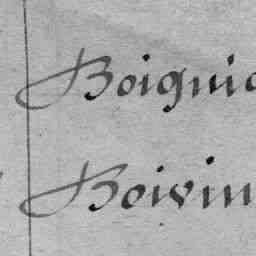 Boignic
Boivin